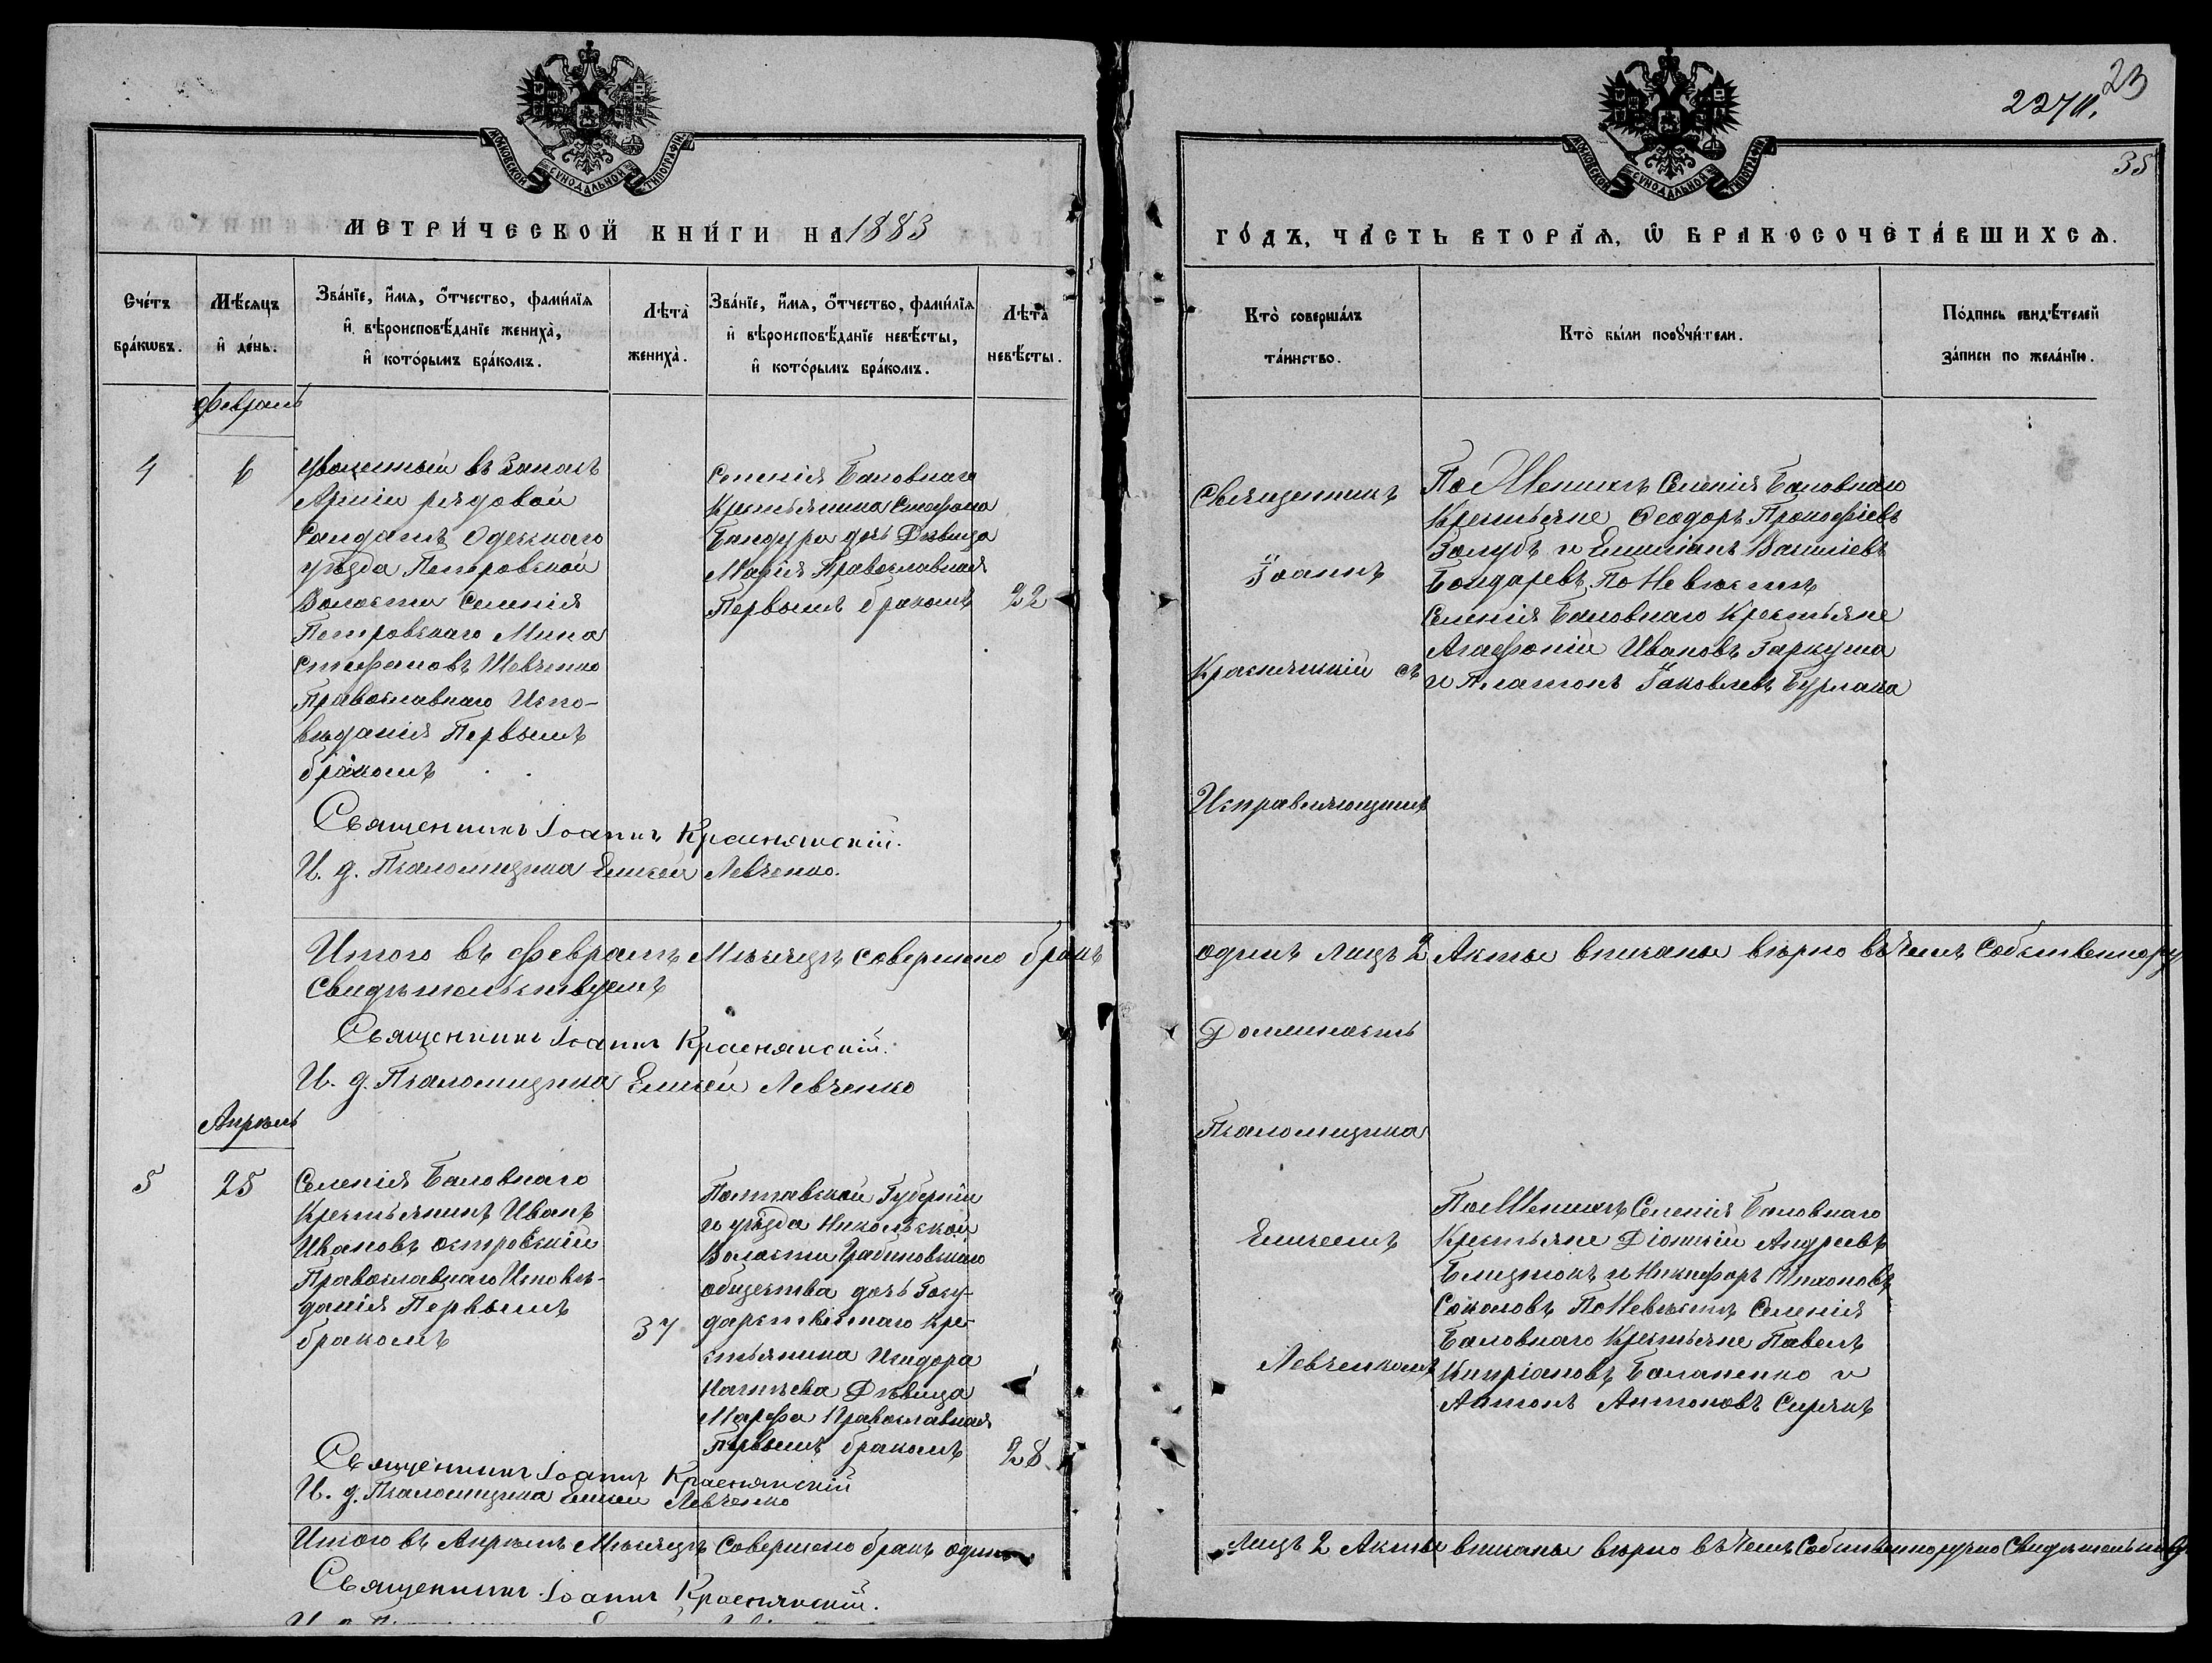 МОСКОВСКОЙ СУНОДАЛЬНОЙ ТИПОГРАФІИ
МЕТРИ́ЧЕСКОЙ КНИ́ГИ НА 1883
Сче́тъ бра́кѡвъ.
Мѣ́сяцъ и҆ де́нь.
Зва́нїе, и҆́мя, ѻ҆́тчество, фами́лїя
и҆ вѣроисповѣ́данїе жениха̀,
и҆ кото́рымъ бра́комъ.
Лѣта̀
жениха̀.
Зва́нїе, и҆́мя, ѻ҆́тчество, фами́лїя
и҆ вѣроисповѣ́данїе невѣ́сты,
и҆ кото́рымъ бра́комъ.
Лѣта̀
невѣ́сты.
Февраль
4
6
Уволенный въ Запасъ
Арміи рядовой
Солдатъ Одесскаго
уѣзда Петровской
Волости Селенія
Петровскаго Мина
Стефановъ Шевченко
Православнаго Испо-
вѣданія Первымъ
бракомъ
Селенія Баловнаго
Крестьянина Стефана
Бандуры дочь Дѣвица
Марія Православная
Первымъ бракомъ
22
Священникъ Іоаннъ Краснянскій.
И. д. Псаломщика Елисей Левченко.
Итого въ Февралѣ Мѣсяцѣ совершено бракъ
Свидѣтельствуемъ
Священникъ Іоаннъ Краснянскій.
И. д. Псаломщика Елисей Левченко
Апрѣль
5
25
Селенія Баловнаго
Крестьянинъ Иванъ
Ивановъ Островскій
Православнаго Исповѣ-
данія Первымъ
бракомъ
37
Полтавской Губерніи
и уѣзда Никольской
Волости
общества дочь Госу-
дарственнаго Кре-
стьянина Исидора
Дѣвица
Марфа Православная
Первымъ бракомъ
28
Священникъ Іоаннъ Краснянскій
И. д. Псаломщика Елисей Левченко
Итого въ Апрѣлѣ Мѣсяцѣ Совершено бракъ одинъ
Священникъ Іоаннъ Краснянскій.
23
227
35
МОСКОВСКОЙ СУНОДАЛЬНОЙ ТИПОГРАФІИ
ГО́ДЪ, ЧА́СТЬ ВТОРА́Я, Ѡ БРАКОСОЧЕТА́ВШИХСЯ.
Кто̀ соверша́лъ
та́инство.
Кто̀ бы́ли порꙋчи́тели.
По́дпись свидѣ́телей
за́писи по жела́нїю.
Священникъ
Іоаннъ
Краснянскій съ
Исправляющимъ
По Женихѣ Селенія Баловнаго
Крестьяне Ѳеодоръ Прокофіевъ
Голубъ и Емиліанъ Василіевъ
Бондаревъ По Невѣстѣ
Селенія Баловнаго Крестьяне
Агафоній Ивановъ Гаркуша
и Платонъ Іаковлевъ Бурлака
одинъ лицъ 2 Акты вписаны вѣрно въ чемъ Собственнору
Должность
Псаломщика
Елисеемъ
Левченкомъ
По Женихѣ Селенія Баловнаго
Крестьяне Діонисій Андреевъ
и Никифоръ
Соколовъ По Невѣстѣ Селенія
Баловнаго Крестьяне Павелъ
Кипріановъ Баланенко и
Антонъ Антоновъ Сирякъ
лицъ 2 Акты вписаны вѣрно въ чемъ Собственноручно